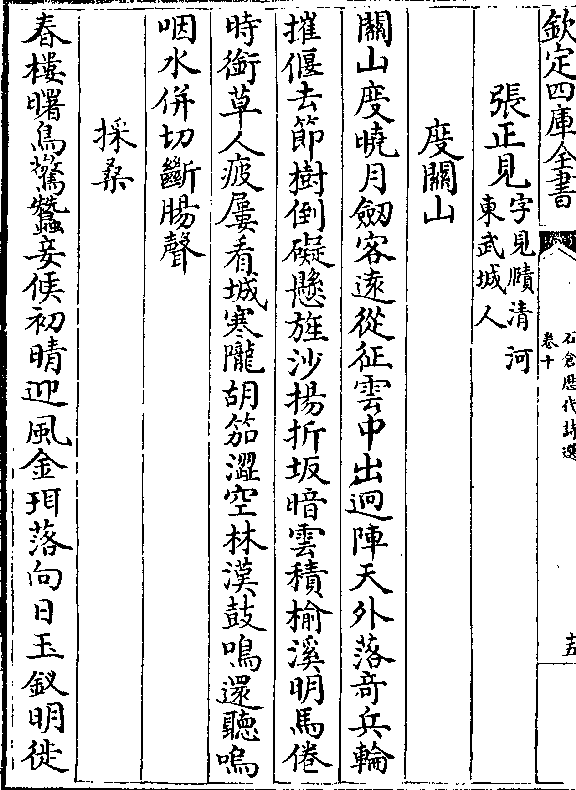 欽定四庫全書
石倉歷代詩選
卷十
十五
張正見字見賾清河
東武城人
度關山
關山度曉月劒客遠從征雲中出迥陣天外落竒兵輪
摧偃去節樹倒礙懸旌沙揚折坂暗雲積榆溪明馬倦
時銜草人疲屢看城寒隴胡笳澀空林漢鼓鳴還聽嗚
咽水併切斷腸聲
採桑
春樓曙鳥驚蠶妾候初晴迎風金珥落向日玉釵明徙